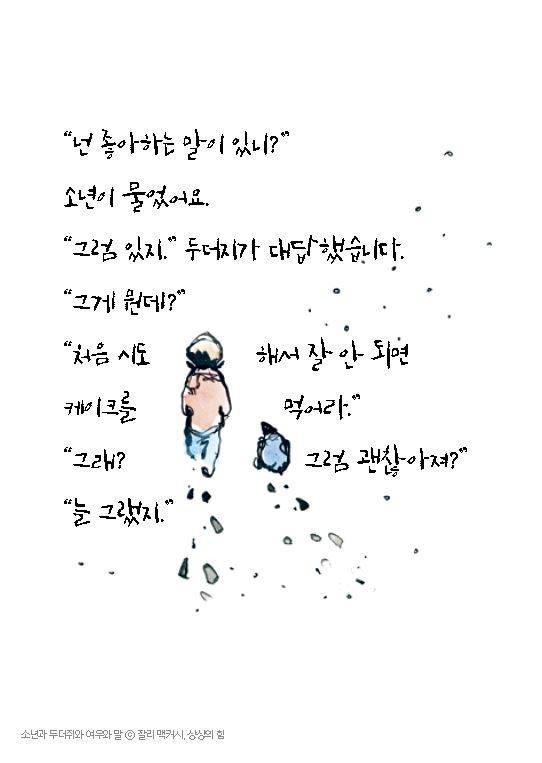 “넌 좋아하는 말이 있니?”
소년이 물었어요.
“그럼 있지.” 두더지가 대답했습니다.
“그게 뭔데?”
“처음 시도해서 잘 안 되면
케이크를 먹어라.”
“그래? 그럼 괜찮아져?”
“늘 그랬지.”
소년과 두더쥐와 여우와 말 ⓒ 찰리 맥커시, 상상의 힘